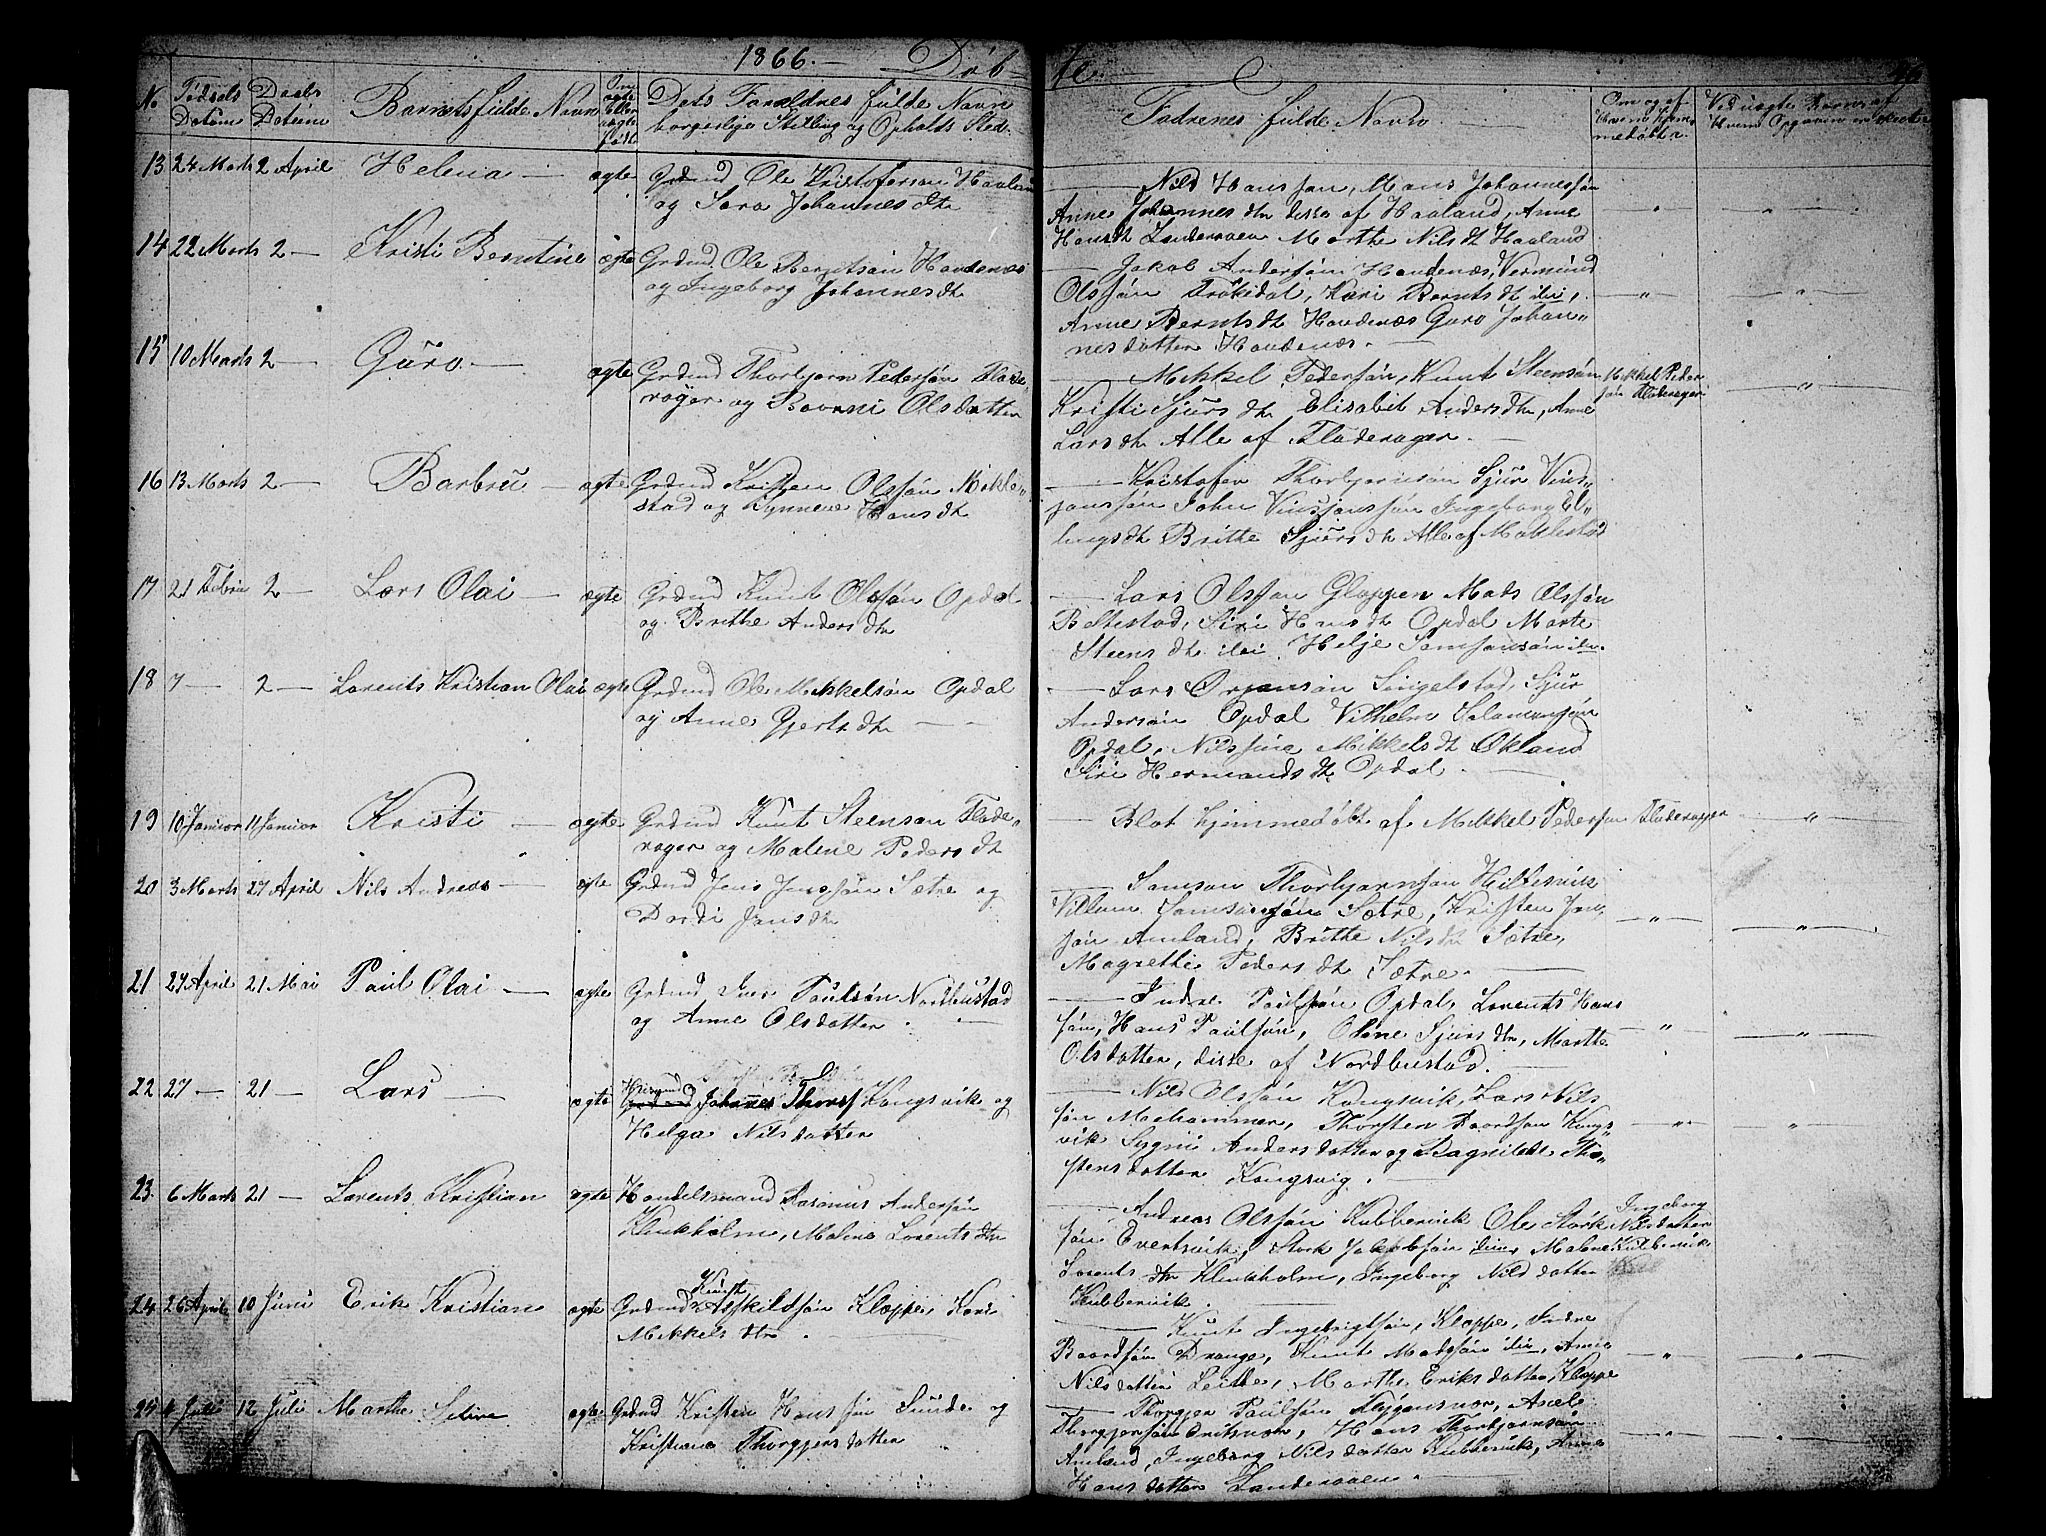 1866. — Døb-
te.
No
Fødsels
Datum
Daabs
Datum
Barnets fulde Navn
Om
ægte
Eller
uægte
født
Dets Forældres fulde Navn
borgerlige Stilling og Opholds Sted.
Fadrenes fulde Navn
Om og af
Hvem hjem
medøbt.
Ved uægte Børn af
Hvem Opgaven er
13 24 Marts 2 April Helena — ægte Grdmd Ole Kristofersøn Haaland
og Sara Johannes dtr
— Nils Hanssøn, Mons Johannessøn
Anne Johannes dtr disse af Haaland, Anne
Hans dt Landeraaen Marthe Nils dt Haaland
14 22 Marts 2 — Kristi Berntine ægte Grdmd Ole Berntsøn Hovdenæs
og Ingeborg Johannes dt
— Jakob Anderssøn Hovdenæs, Vermund
Olssøn Frøkedal, Kari Bernts dt ibi,
Anne Bernts dt Hovdenæs Guro Johan-
nesdatter Hovdenæs. —
15 10 Marts 2 — Guro — ægte Grdmd Thorbjørn Pedersøn Flade-
rager og Bovrni Olsdatter
— Mikkel Pedersøn, Knut Steensøn
Kristi Sjurs dt Elisabet Anders dtr, Anne
Lars dt Alle af Fladerager. —
Mikkel Peder
søn Fladerager
16 13 Marts 2 — Barbru — ægte Grdmd Kristen Olssøn Mikle-
stad og Hans dt
— Kristofer Thorbjørnsøn Sjur Vins-
janssøn John Vinsjanssøn Ingeborg El-
lings dt Brithe Sjurs dt Alle af Miklestad
17 21 Febru 2 — Lars Olai — ægte Grdmd Knut Olssøn Opdal
og Brithe Anders dtr
— Lars Olssøn Gloppen Mads Olssøn
Beltestad, Siri Hans dt Opdal Marte
Steens dt ibi, Helje Samsonsøn ibi.
18 7 — 2 — Lorents Kristian Olai ægte Grdmd Ole Mikkelsøn Opdal
og Anne Gjerts dtr — —
— Lars Ørjansøn Singelstad, Sjur
Andersøn Opdal Vilhelm Salamonsøn
Opdal, Nilssine Mikkels dt Økland
Siri Hermands dt Opdal. —
19 10 Januar 11 Januar Kristi — ægte Grdmd Knut Steensøn Flade-
rager og Malene Peders dt
— Blot hjemmedøbt af Mikkel Pedersøn Fladerager
20 3 Marts 27 April Nils Andreas — ægte Grdmd Jens Jenssøn Sætre og
Dordi Jans dtr
— Samson Thorbjørnsøn Hiltesvik
Villum Samsonsøn Sætre, Kristen Jan-
søn Amland, Brithe Nils dtr Sætre,
Magrethe Peders dt Sætre. —
21 27 April 21 Mai Paul Olai — ægte Grdmd Iver Paulsøn Nordhustad
og Anne Olsdatter.
— Indre Paulsøn Opdal, Lorents Hans
søn, Hans Paulsøn, Oline Sjurs dtr, Marthe
Olsdatter, disse af Nordbustad.
22 27 — 21 — Lars — ægte Husmd Johannes Thors Kongsvik og
Helga Nils datter
— Nils Olssøn Kongsvik, Lars Nils
søn Mehammer, Thorsten Baardsøn Kongs-
vik Sygni Andersdatter og Ragnilde Tho-
stensdatter Kongsvig. —
23 6 Marts 21 — Lorents Kristian ægte Handelsmand Rasmus Andersøn
Klinkholm, Malene Lorents dtr
— Andreas Olssøn Kubbervik Ole Stork
søn Evertsvik, Stork Jakobsøn ibi, Malene
Lorents dtr Klinkholm, Ingeborg Nilsdatter
Kubbervik. —
Ingeborg
Nilsdatter
Kubbervik
24 26 April 10 Juni Erik Kristian ægte Grdmd Knut Asskildsøn Kloppe, Kari
Mikkels dtr. —
— Knut Ingebrigtsøn, Kloppe, Indre
Baardsøn Drange, Knut Madssøn ibi, Anne
Nilsdatter Leithe, Marthe Eriksdatter, Kloppe
25 4 Juli 12 Juli Marthe Seline ægte Grdmd Kristen Hanssøn Sunde og
Kristiane Thorgjersdatter
— Thorgjer Paulsøn Flygansvær, Axel
Thorgjersøn Eritsvær, Hans Thorbjørnsøn
Amland, Ingeborg Nilsdatter Kubbervik, Anne
Hansdatter Landeraaen. —